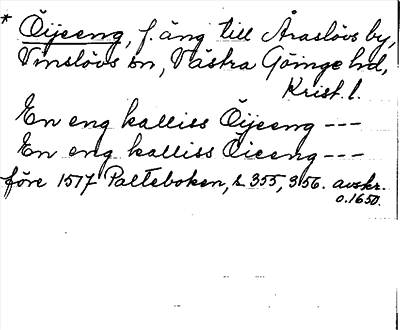 * Öijeeng, f. äng till Araslövs by,
Vinslövs sn, Västra Göinge hd,
Krist. l.
En eng kalliss Öijeeng ---
En eng kalliss Öieeng ---
före 1517 Palteboken, s. 355, 356. avskr.
o. 1650.